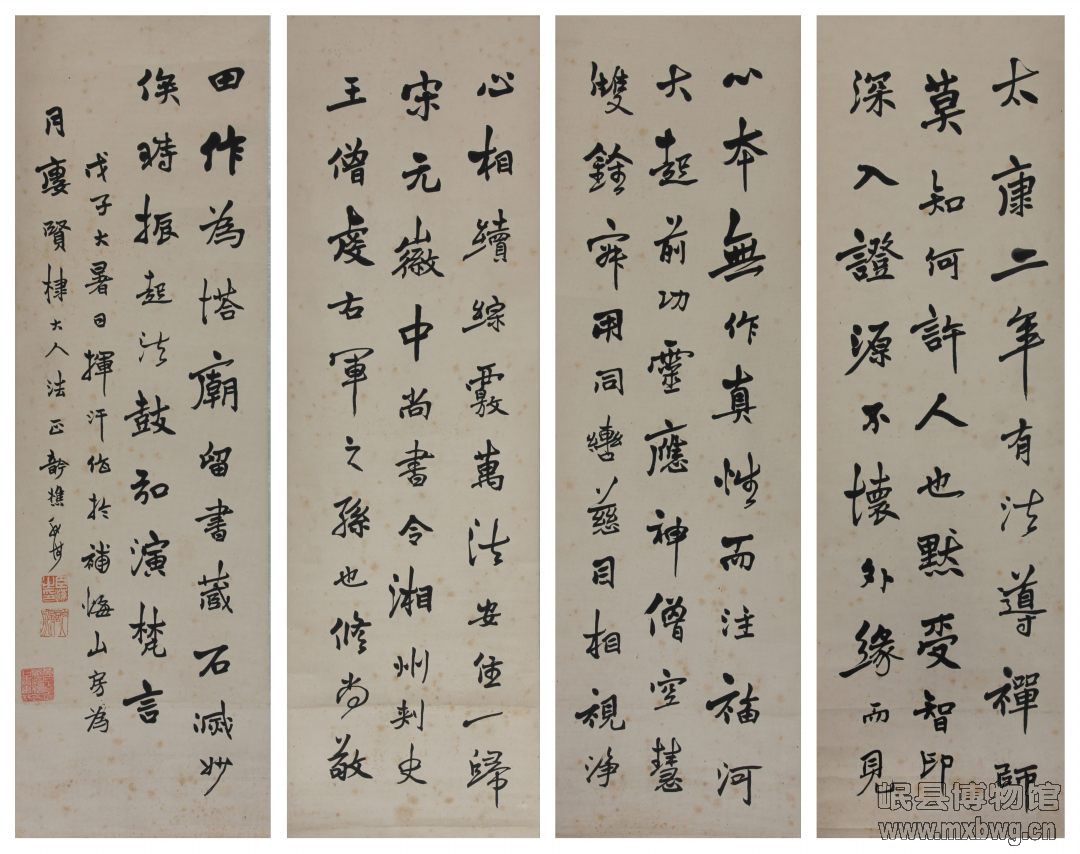 太康二年有法導禪師
莫知何許人也默受智印
深入證源不懷外緣而見
心本無作真性而注福河
大起前功靈應神僧空慧
雙銓寂用同轡慈目相視淨
心相續綜覈萬法安住一歸
宋元徽中尚書令湘州刺史
王僧虔右軍之孫也脩尚敬
田作為塔廟留書藏石滅妙
俟時振起法鼓弘演梵言
戊子大暑日揮汗作於補悔山房為
月廔賢棣大人法正
岷县博物馆
www.mxbwg.cn